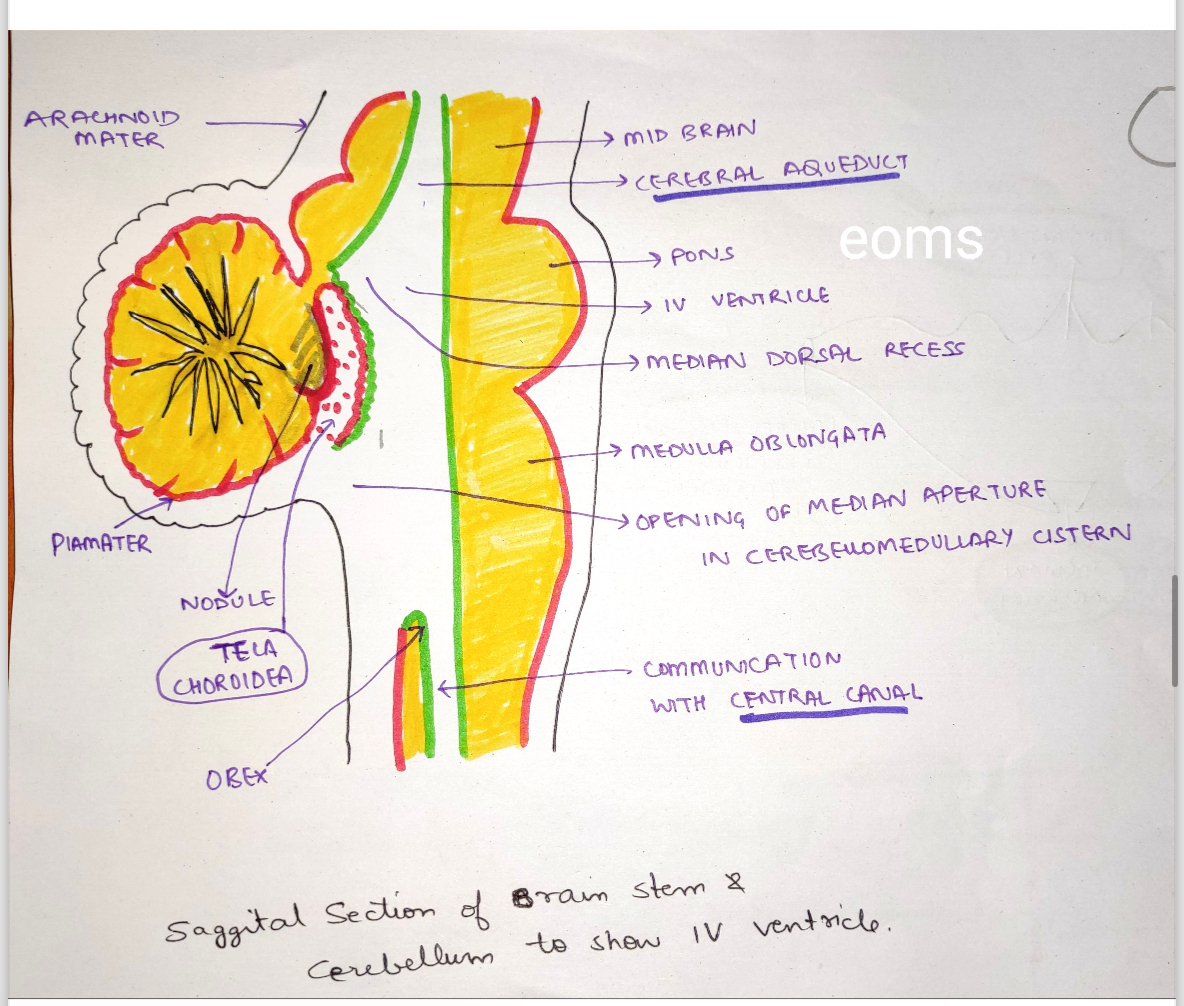 ARACHNOID
MATER
MID BRAIN
CEREBRAL AQUEDUCT
eoms
PONS
IV VENTRICLE
MEDIAN DORSAL RECESS
MEDULLA OBLONGATA
OPENING OF MEDIAN APERTURE
IN CEREBELLOMEDULLARY CISTERN
PIAMATER
NODULE
TELA
CHOROIDEA
COMMUNICATION
WITH CENTRAL CANAL
OBEX
Saggital Section of Brain stem &
Cerebellum to show IV ventricle.